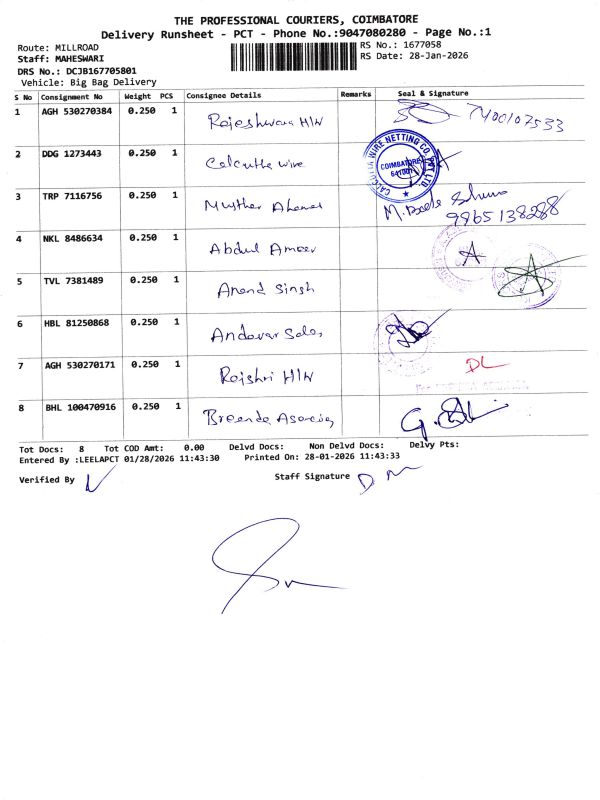 THE PROFESSIONAL COURIERS, COIMBATORE
Delivery Runsheet - PCT - Phone No.:9047080280 - Page No.:1
Route: MILLROAD
Staff: MAHESWARI
DRS No.: DCJB167705801
Vehicle: Big Bag Delivery
RS No.: 1677058
RS Date: 28-Jan-2026
S No Consignment No Weight PCS Consignee Details Remarks Seal & Signature
1 AGH 530270384 0.250 1 Rajeshwari H/W 7400107533
2 DDG 1273443 0.250 1 Calcutta wire
CALCUTTA WIRE NETTING CO. PVT LTD
COIMBATORE
641001
3 TRP 7116756 0.250 1 9865138288
4 NKL 8486634 0.250 1 Abdul Ameer
5 TVL 7381489 0.250 1 Anand Singh
6 HBL 81250868 0.250 1 Andavar Sales
7 AGH 530270171 0.250 1 Rajshri H/W DL
8 BHL 100470916 0.250 1
Tot Docs: 8 Tot COD Amt: 0.00 Delvd Docs: Non Delvd Docs: Delvy Pts:
Entered By :LEELAPCT 01/28/2026 11:43:30 Printed On: 28-01-2026 11:43:33
Verified By
Staff Signature